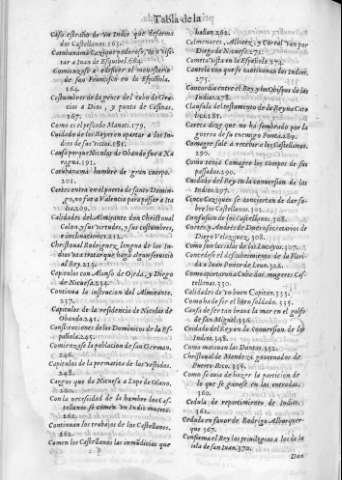 Tabla de la
Caso estraño de vn Indio que desarmo
dos Castellanos. 163.
Cotubanamà Cazique poderoso, va a visi-
tar a Iuan de Esquibel. 164.
Comiençase a edificar el monesterio
de san Francisco en la Española.
164.
Costumbres de la gente del cabo de Gra-
cias a Dios, y punta de Casinas.
167.
Como es el pescado Manati. 179.
Cuidado de los Reyes en apartar a los In-
dios de sus vicios. 181.
Causa porque Nicolas de Obando fue a Xa
ragua. 191.
Cotubanamà hombre de gran cuerpo.
201.
Cortes entra en el puerto de santo Domin-
go, no fue a Valencia para passar a Ita
lia. 209.
Calidades del Almirante don Christoual
Colon, y sus virtudes, y sus costumbres,
e inclinaciones. 212.
Christoual Rodriguez lengua de los In-
dios
al Rey. 215.
Capitulos con Alonso de Ojeda, y Diego
de Nicuesa. 234.
Continua la instrucion del Almirante.
237.
Capitulos de la residencia de Nicolas de
Obando. 241.
Constituciones de los Dominicos de la Es-
pañola. 245.
Comiençase la poblacion de san German.
246.
Capitulos de la prematica de los vestidos.
248.
Cargos que da Nicuesa a Lope de Olano.
260.
Con la necesidad de la hambre los Cas-
tellanos se comen vn Indio muerto.
262.
Continuan los trabajos de los Castellanos.
262.
Comen los Castellanos las inmundicias que
hallan. 262.
Colmenares, Albitez, y Corral van por
Diego de Nicuesa. 271.
Contratacion en la Española. 272.
Cautela con que se cautiuauan los Indios.
275.
Concordia entre el Rey y los Obispos de
las Indias. 278.
Clausula del testamento de la Reyna Cato
lica. 281.
Careta dize que no ha sembrado por la
guerra de su enemigo Ponca. 289.
Comagre sale a recebir a los Castellanos.
290.
Como tenia Comagre los cuerpos de sus
passados. 290.
Cuidado del Rey en la conuersion de los
Indios. 297.
Cinco Caziques se conciertan de dar so-
bre los Castellanos. 301.
Confusion de los Castellanos. 308.
Cortes y Andres de Duero secretarios de
Diego Velazquez. 308.
Como son las islas de los Lucayos. 307.
Cometese el descubrimiento de la Flori-
da a Iuan Ponce de Leon. 328.
Como aportaron a Cuba dos mugeres Cas-
tellanas. 330.
Calidades de vn buen Capitan. 335.
Como ha de ser el buen soldado. 335.
Causa de ser tan braua la mar en el golfo
de san Miguel. 336.
Cuidado del Rey en la conuersion de los
Indios. 348.
Como matauan las Dantas. 352.
Christoual de Mendoza gouernador de
Puerto Rico. 359.
Como se auia de hazer la particion de
lo que se ganasse en las entradas.
360.
Cedula de repartimiento de Indios.
361.
Cedula en fauor de Rodrigo Alburquer-
que. 367.
Confirma el Rey los priuilegios a los de la
isla de san Iuan. 370.